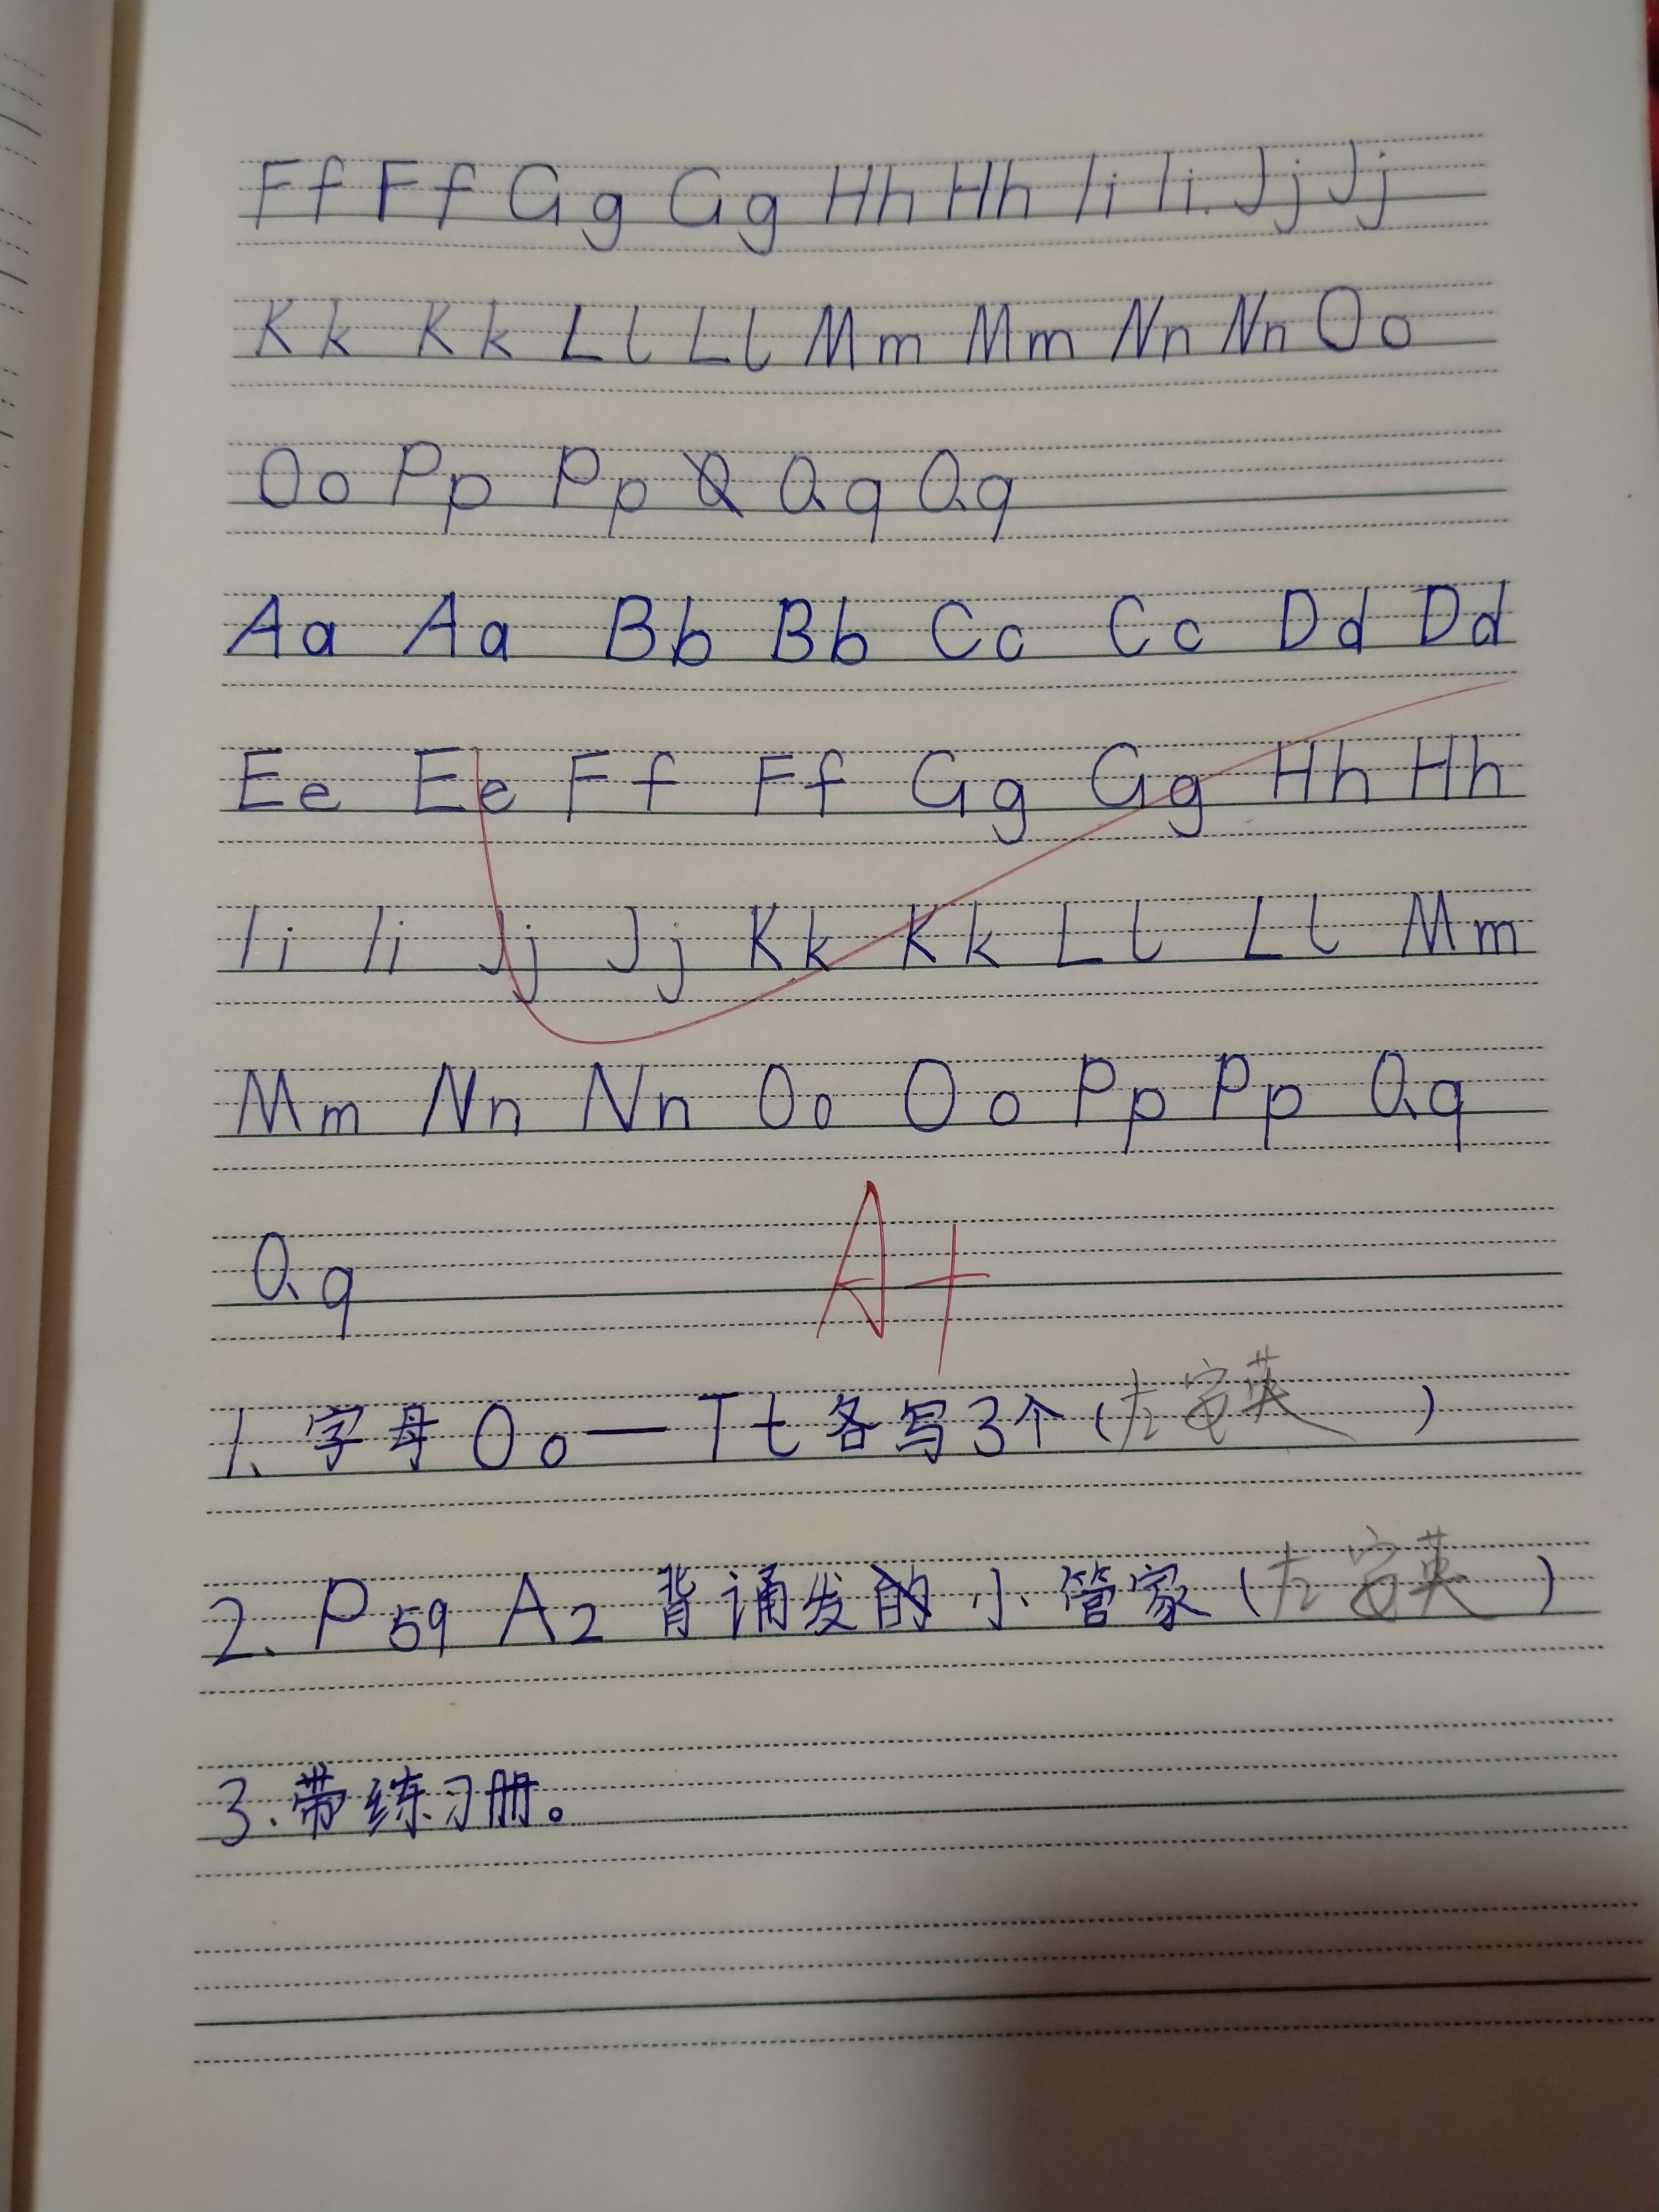 Ff Ff Gg Gg Hh Hh Ii Ii. Jj Jj
Kk Kk Ll Ll Mm Mm Nn Nn Oo
Oo Pp Pp Qq Qq
Aa Aa Bb Bb Cc Cc Dd Dd
Ee Ee Ff Ff Gg Gg Hh Hh
Ii Ii Jj Jj Kk Kk Ll Ll Mm
Mm Nn Nn Oo Oo Pp Pp Qq
Qq
A+
1、字母Oo—Tt各写3个( )
2、P59 A2 背诵发的小管家( )
3.带练习册。